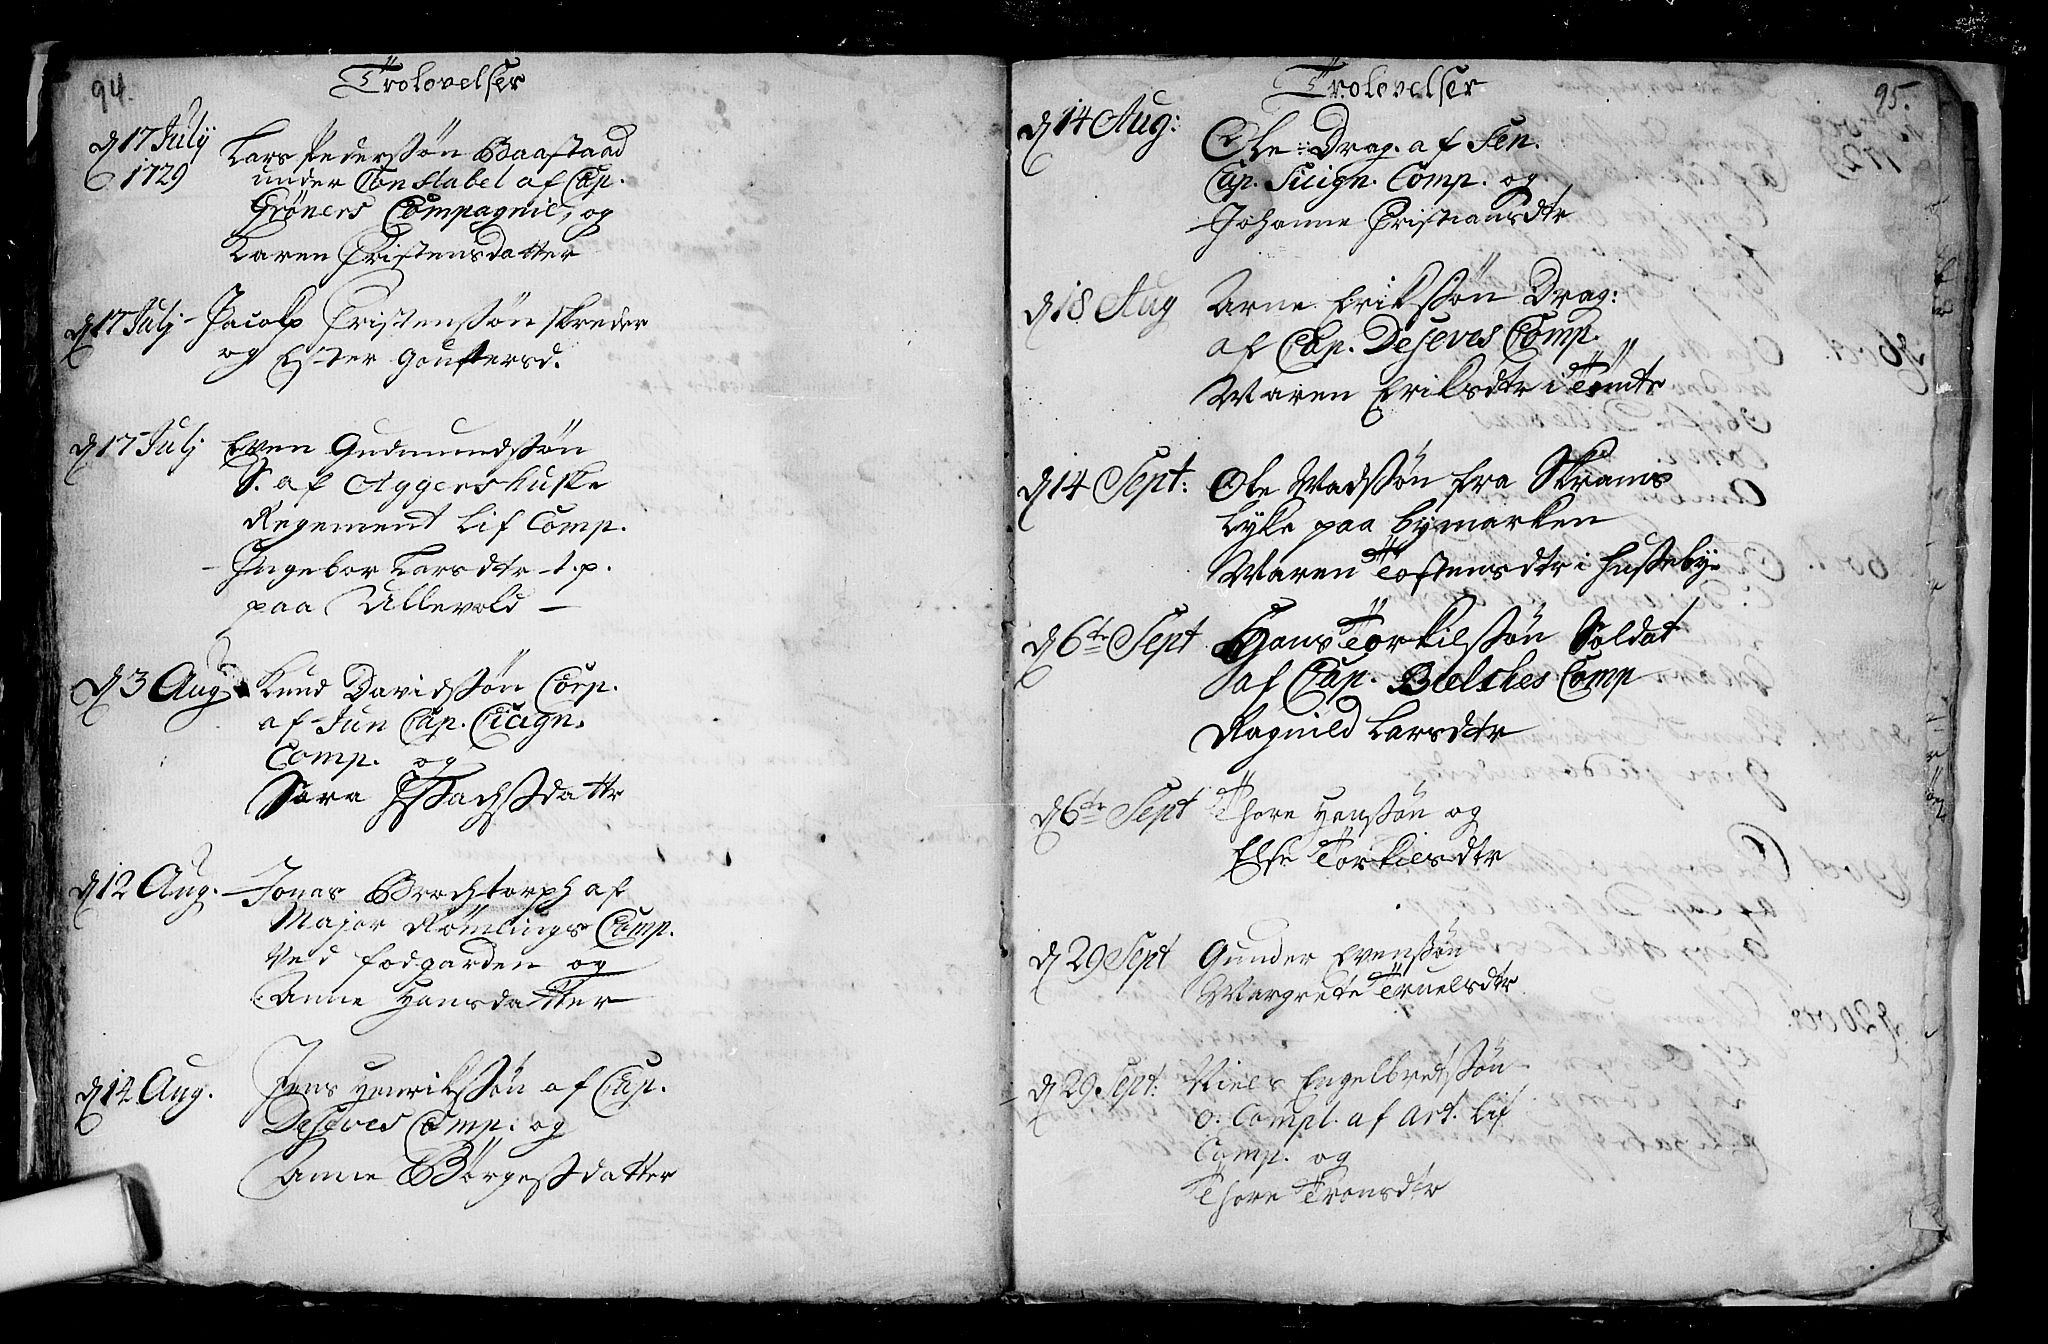 94.
Trolovelser
d 17 July
1729
Lars Pedersøn Baastaad
under Constabel af Cap.
Grøners Compagnie, og
Karen Cristensdatter
d 17 Julj
Jacob Cristenssøn skreder
og Ester Goustersd.
d 17 Julj
Even Gudmundssøn
S. af Aggershuske
Regement Lif Comp.
Ingebor Larsdtr t.p.
paa Ullevold
d 3 Aug.
Knud Davidssøn Corp.
af Jun Cap. Cicign.
Comp. og
Sara Issachsdattr
d 12 Aug.
Jonas Brochtorph af
Major Rømlings Comp.
ved fodgarden og
Anne Hansdatter
d 14 Aug.
Jens Henrikssøn af Cap.
Deseves Comp: og
Anne Børgesdatter
95.
Trolovelser
d 14 Aug:
Ole Drag. af Sen.
Cap. Sicign. Comp. og
Johanne Cristiansdtr
d 18 Aug
Arne Erikssøn Drag:
af Cap. Deseves Comp.
Maren Eriksdtr i Tømte
d 14 Sept:
Ole Madssøn fra Skrams
Lyke paa bymarken
Maren Tostensdtr i Husseby
d 6te Sept
Hans Torkilssøn Soldat
af Cap. Bielckes Comp
Ragnild Larsdtr
d 6te Sept
Thore Hanssøn og
Else Torkilsdtr
d 29 Sept
Gunder Evenssøn
Margrete Truelsdtr
d 29 Sept:
Niels Engelbretssøn
o. Compl. af Art. Lif
Comp. og
Thore Tronsdtr